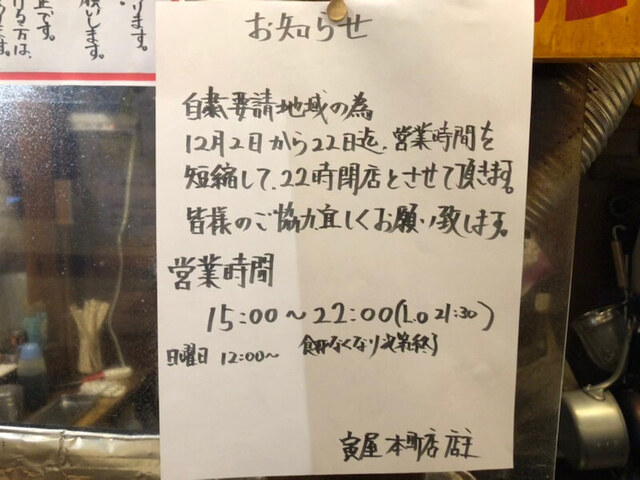 お知らせ
自粛要請地域の為
12月2日から22日迄、営業時間を
短縮して、22時閉店とさせて頂きます。
皆様のご協力宜しくお願い致します。
営業時間
15:00～22:00(L.O 21:30)
日曜日 12:00～
食材なくなり次第終了
寅屋 本町店 店主
ります。
願いします。
です。
ける方は、